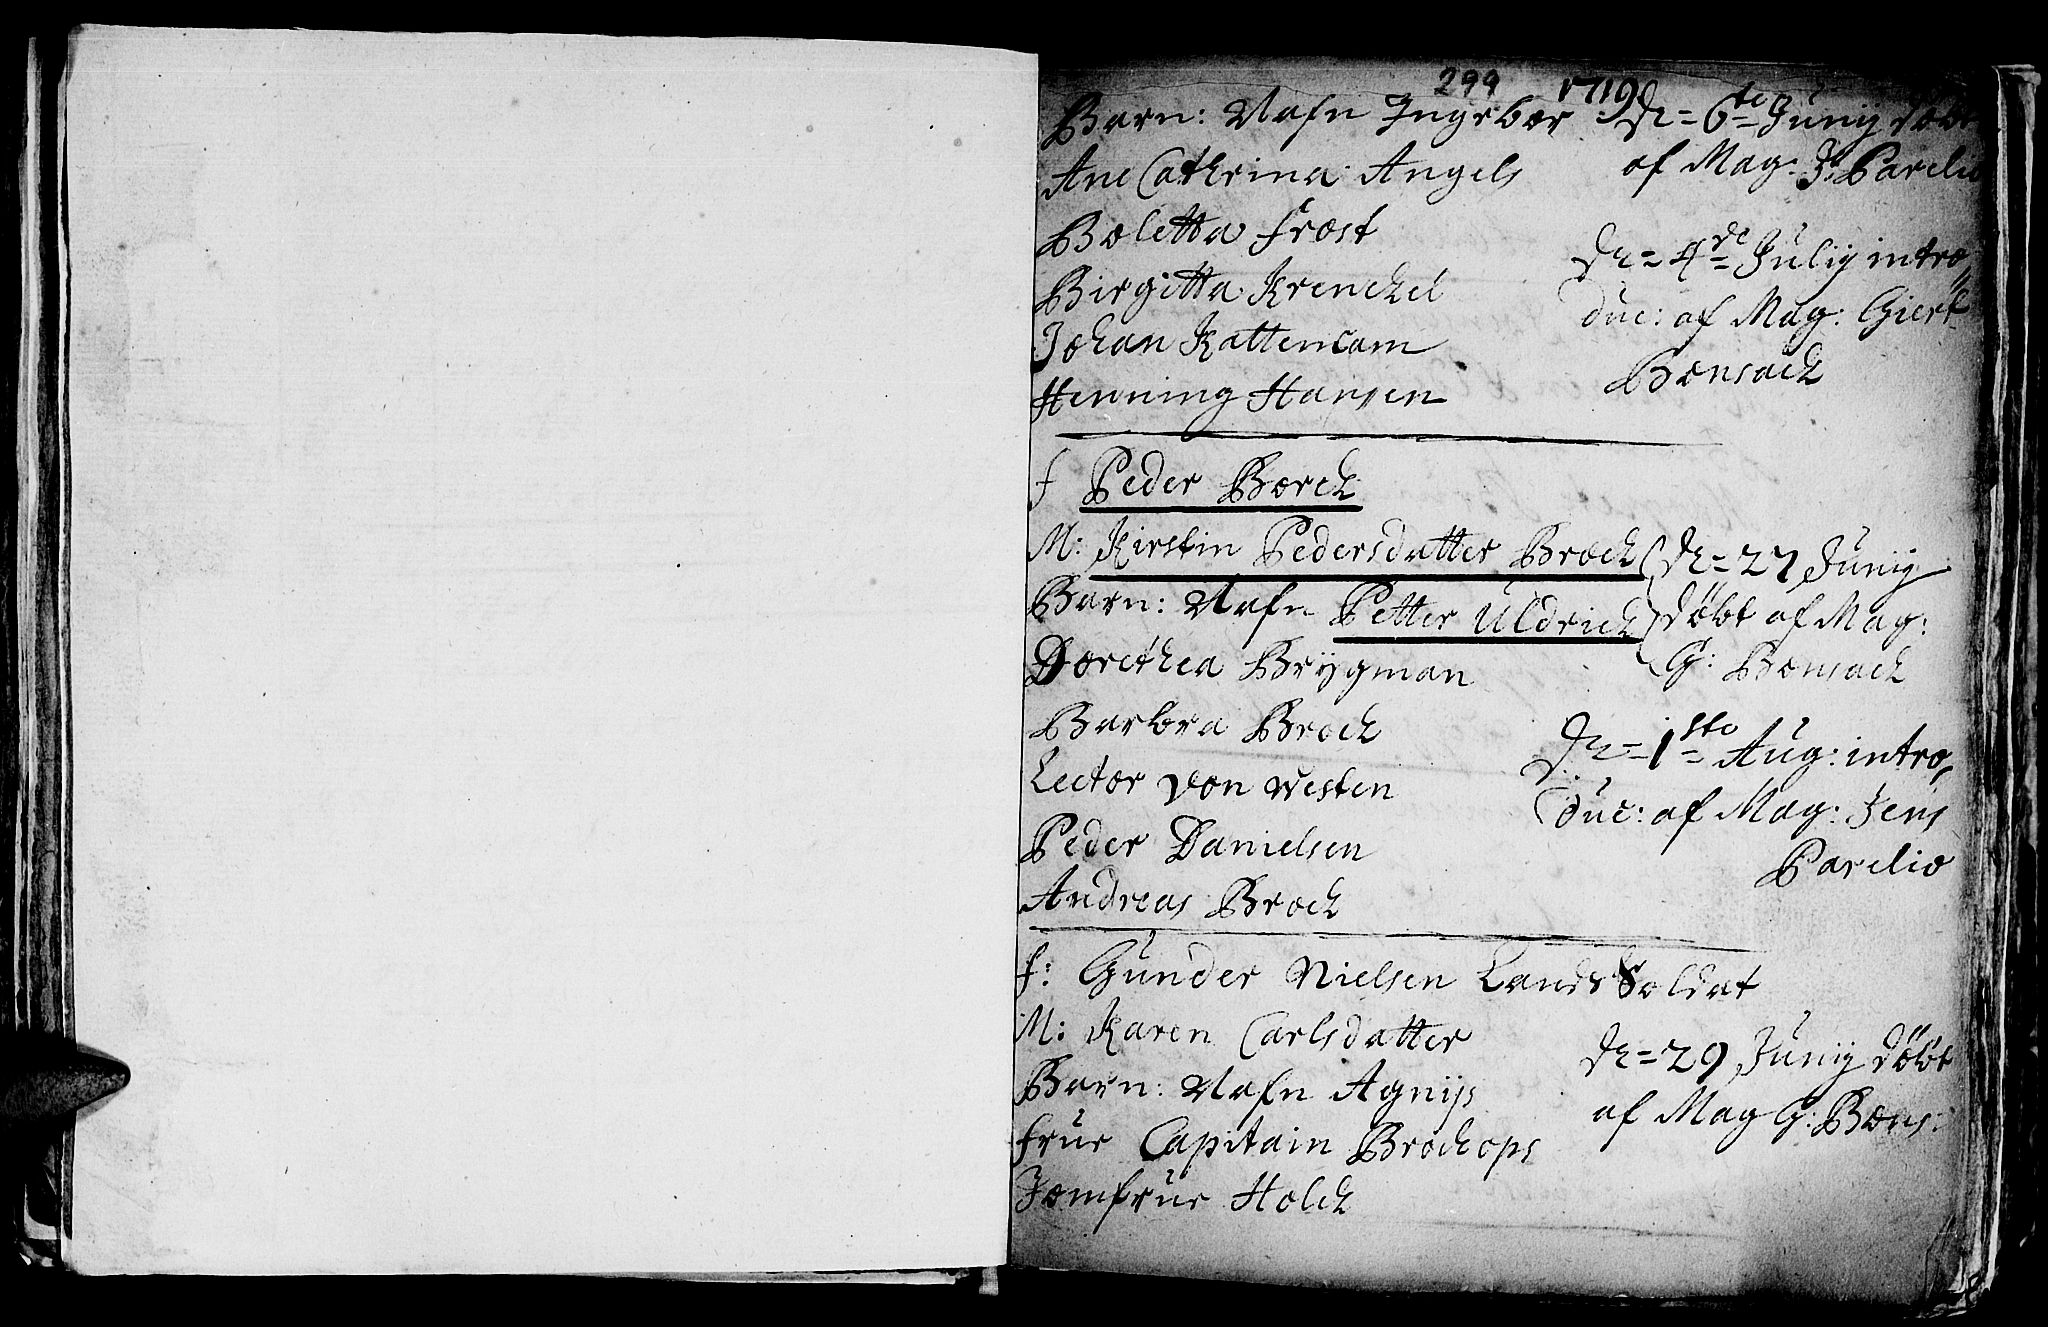 299 1719
Barn: Nafn Ingebor
Ane Cathrina Angels
Boletta Frost
Birgitta Krenckel
Johan Kattencam
Henning Hansen
D= 6te Junij døbt
af Mag: J: Parelio
D= 4de Julij intro,,
duc: af Mag: Giert
Bonsack
f Peder Borck
M: Kirstin Pedersdatter Brock
Barn: Nafn Petter Uldrich
Dorethea Brygman
Barbra Brock
Lector von Westen
Peder Danielsen
Andreas Brock
D= 27 Junij
døbt af Mag:
G: Bonsack
D= 1ste Aug: intro,
duc: af Mag: Jens
Parelio
f: Gunder Nielsen Lands Soldat
M: Karen Carlsdatter
Barn: Nafn Agnijs
Frue Capitain Brochops
Jomfrue Holck
D= 29 Junij døbt
af Mag G: Bons: